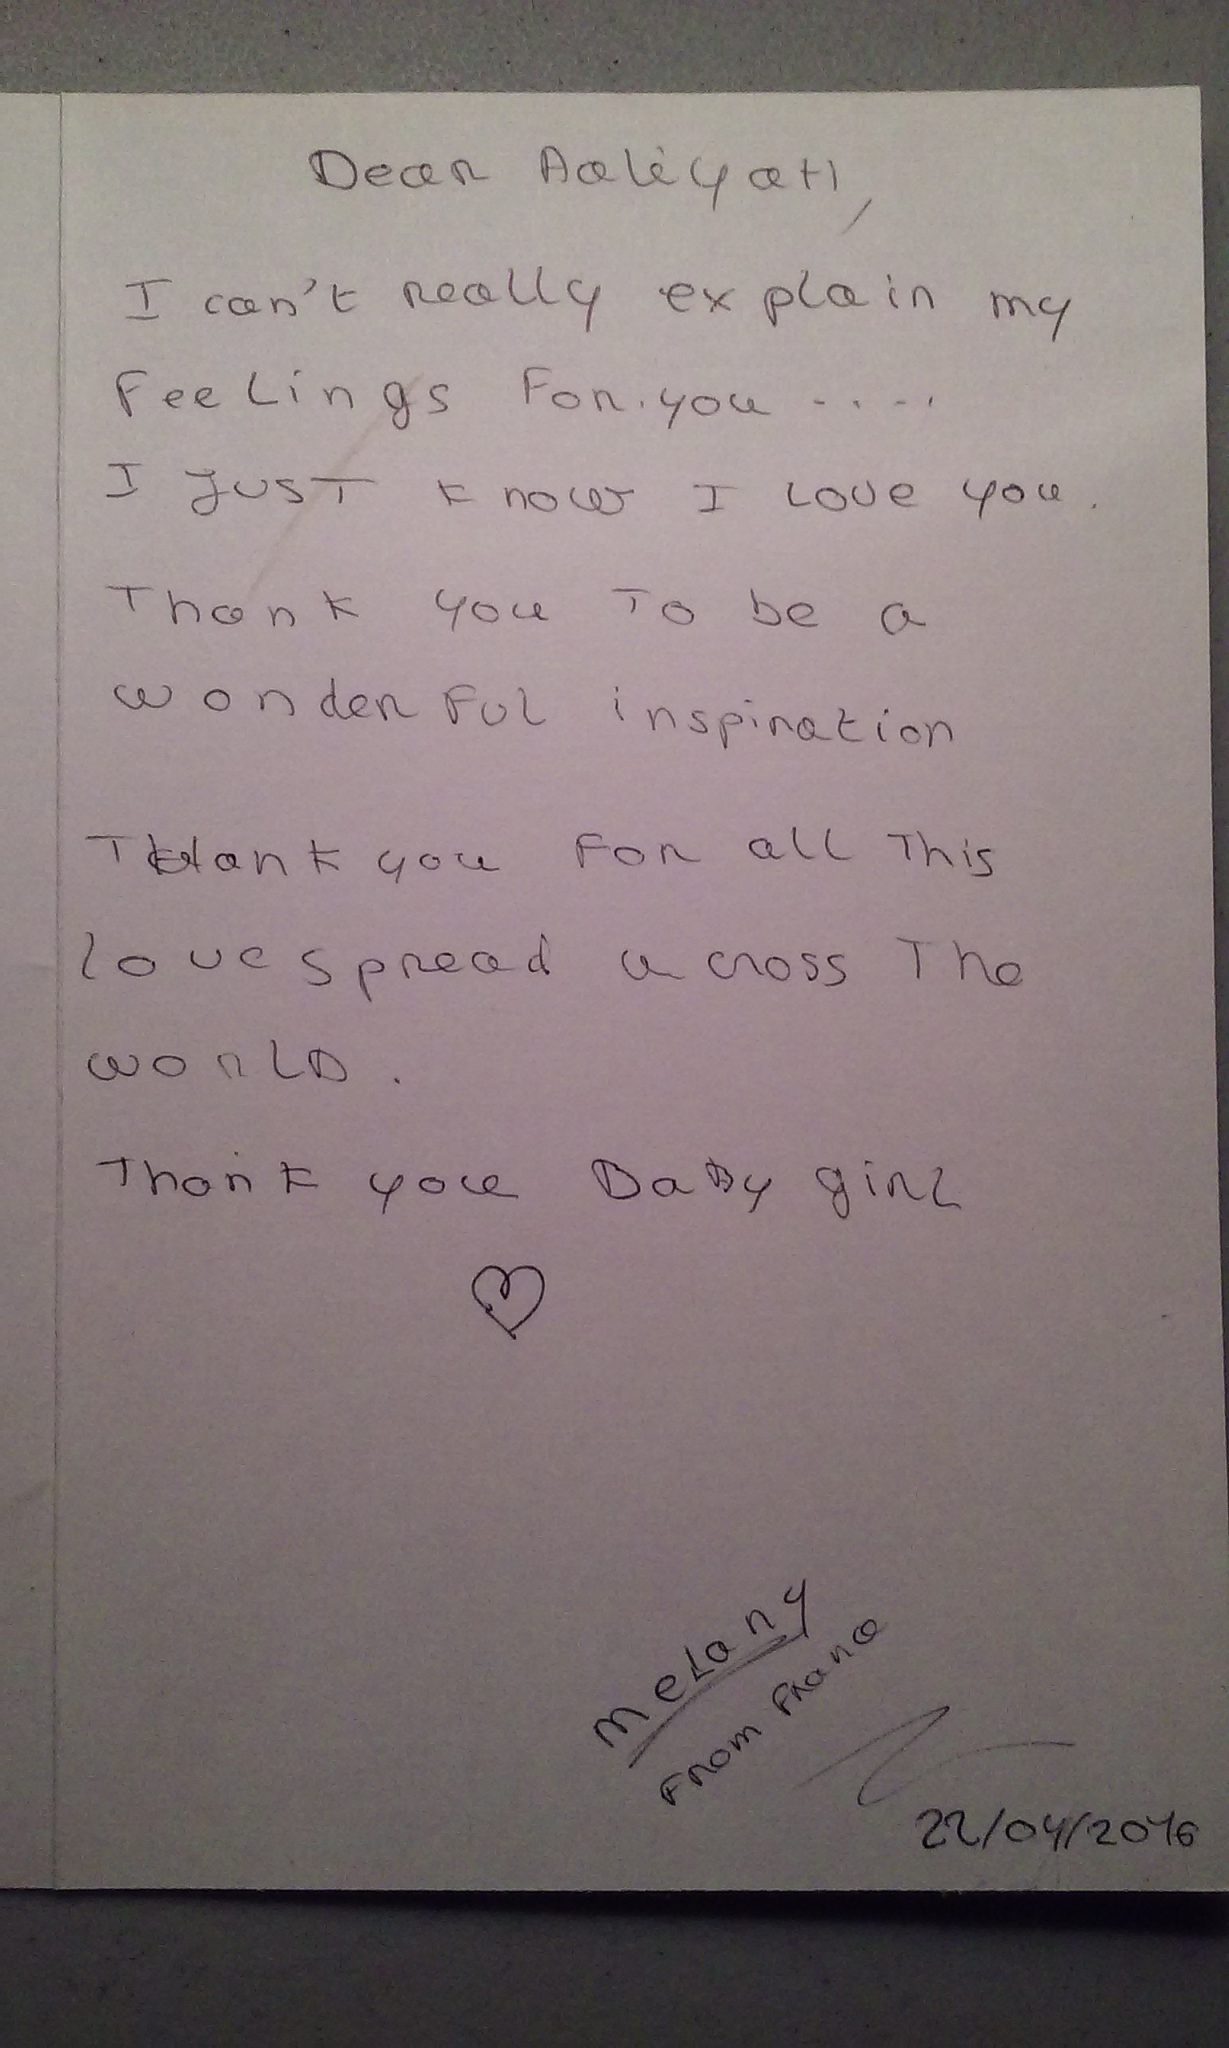 Dear AaliyaH,
I can't really explain my
Feelings For you .....
I JUST know I Love you.
Thank you To be a
wonderFul inspiration
THank you For all This
love spread across The
worLD.
Thank you BaBy girl
♡
meLany
From France
22/04/2016